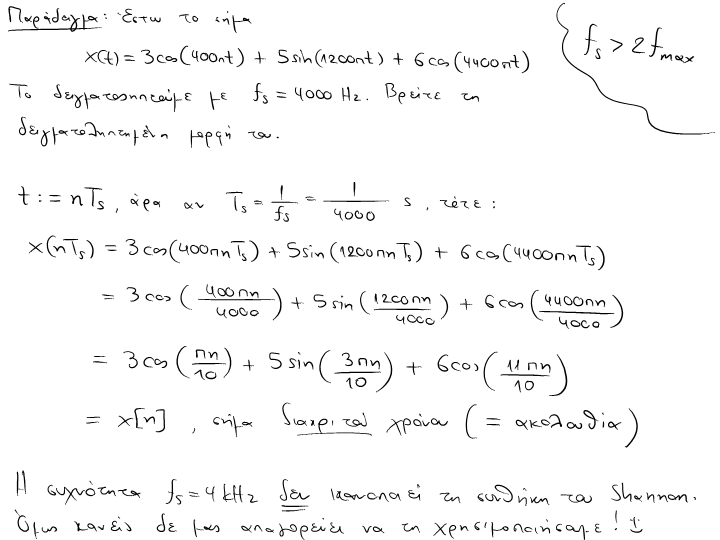 Παράδειγμα: Έστω το σήμα
x(t) = 3cos(400πt) + 5sin(1200πt) + 6cos(4400πt)
fs > 2fmax
Το δειγματοληπτούμε με fs = 4000 Hz. Βρείτε τη
δειγματοληπτημένη μορφή του.
t := nTs, άρα αν Ts = 1/fs = 1/4000 s, τότε:
x(nTs) = 3cos(400πnTs) + 5sin(1200πnTs) + 6cos(4400πnTs)
= 3cos(400πn/4000) + 5sin(1200πn/4000) + 6cos(4400πn/4000)
= 3cos(πn/10) + 5sin(3πn/10) + 6cos(11πn/10)
= x[n], σήμα διακριτού χρόνου (= ακολουθία)
Η συχνότητα fs = 4kHz δεν ικανοποιεί τη συνθήκη του Shannon.
Όμως κανείς δε μας απαγορεύει να τη χρησιμοποιήσουμε! :)